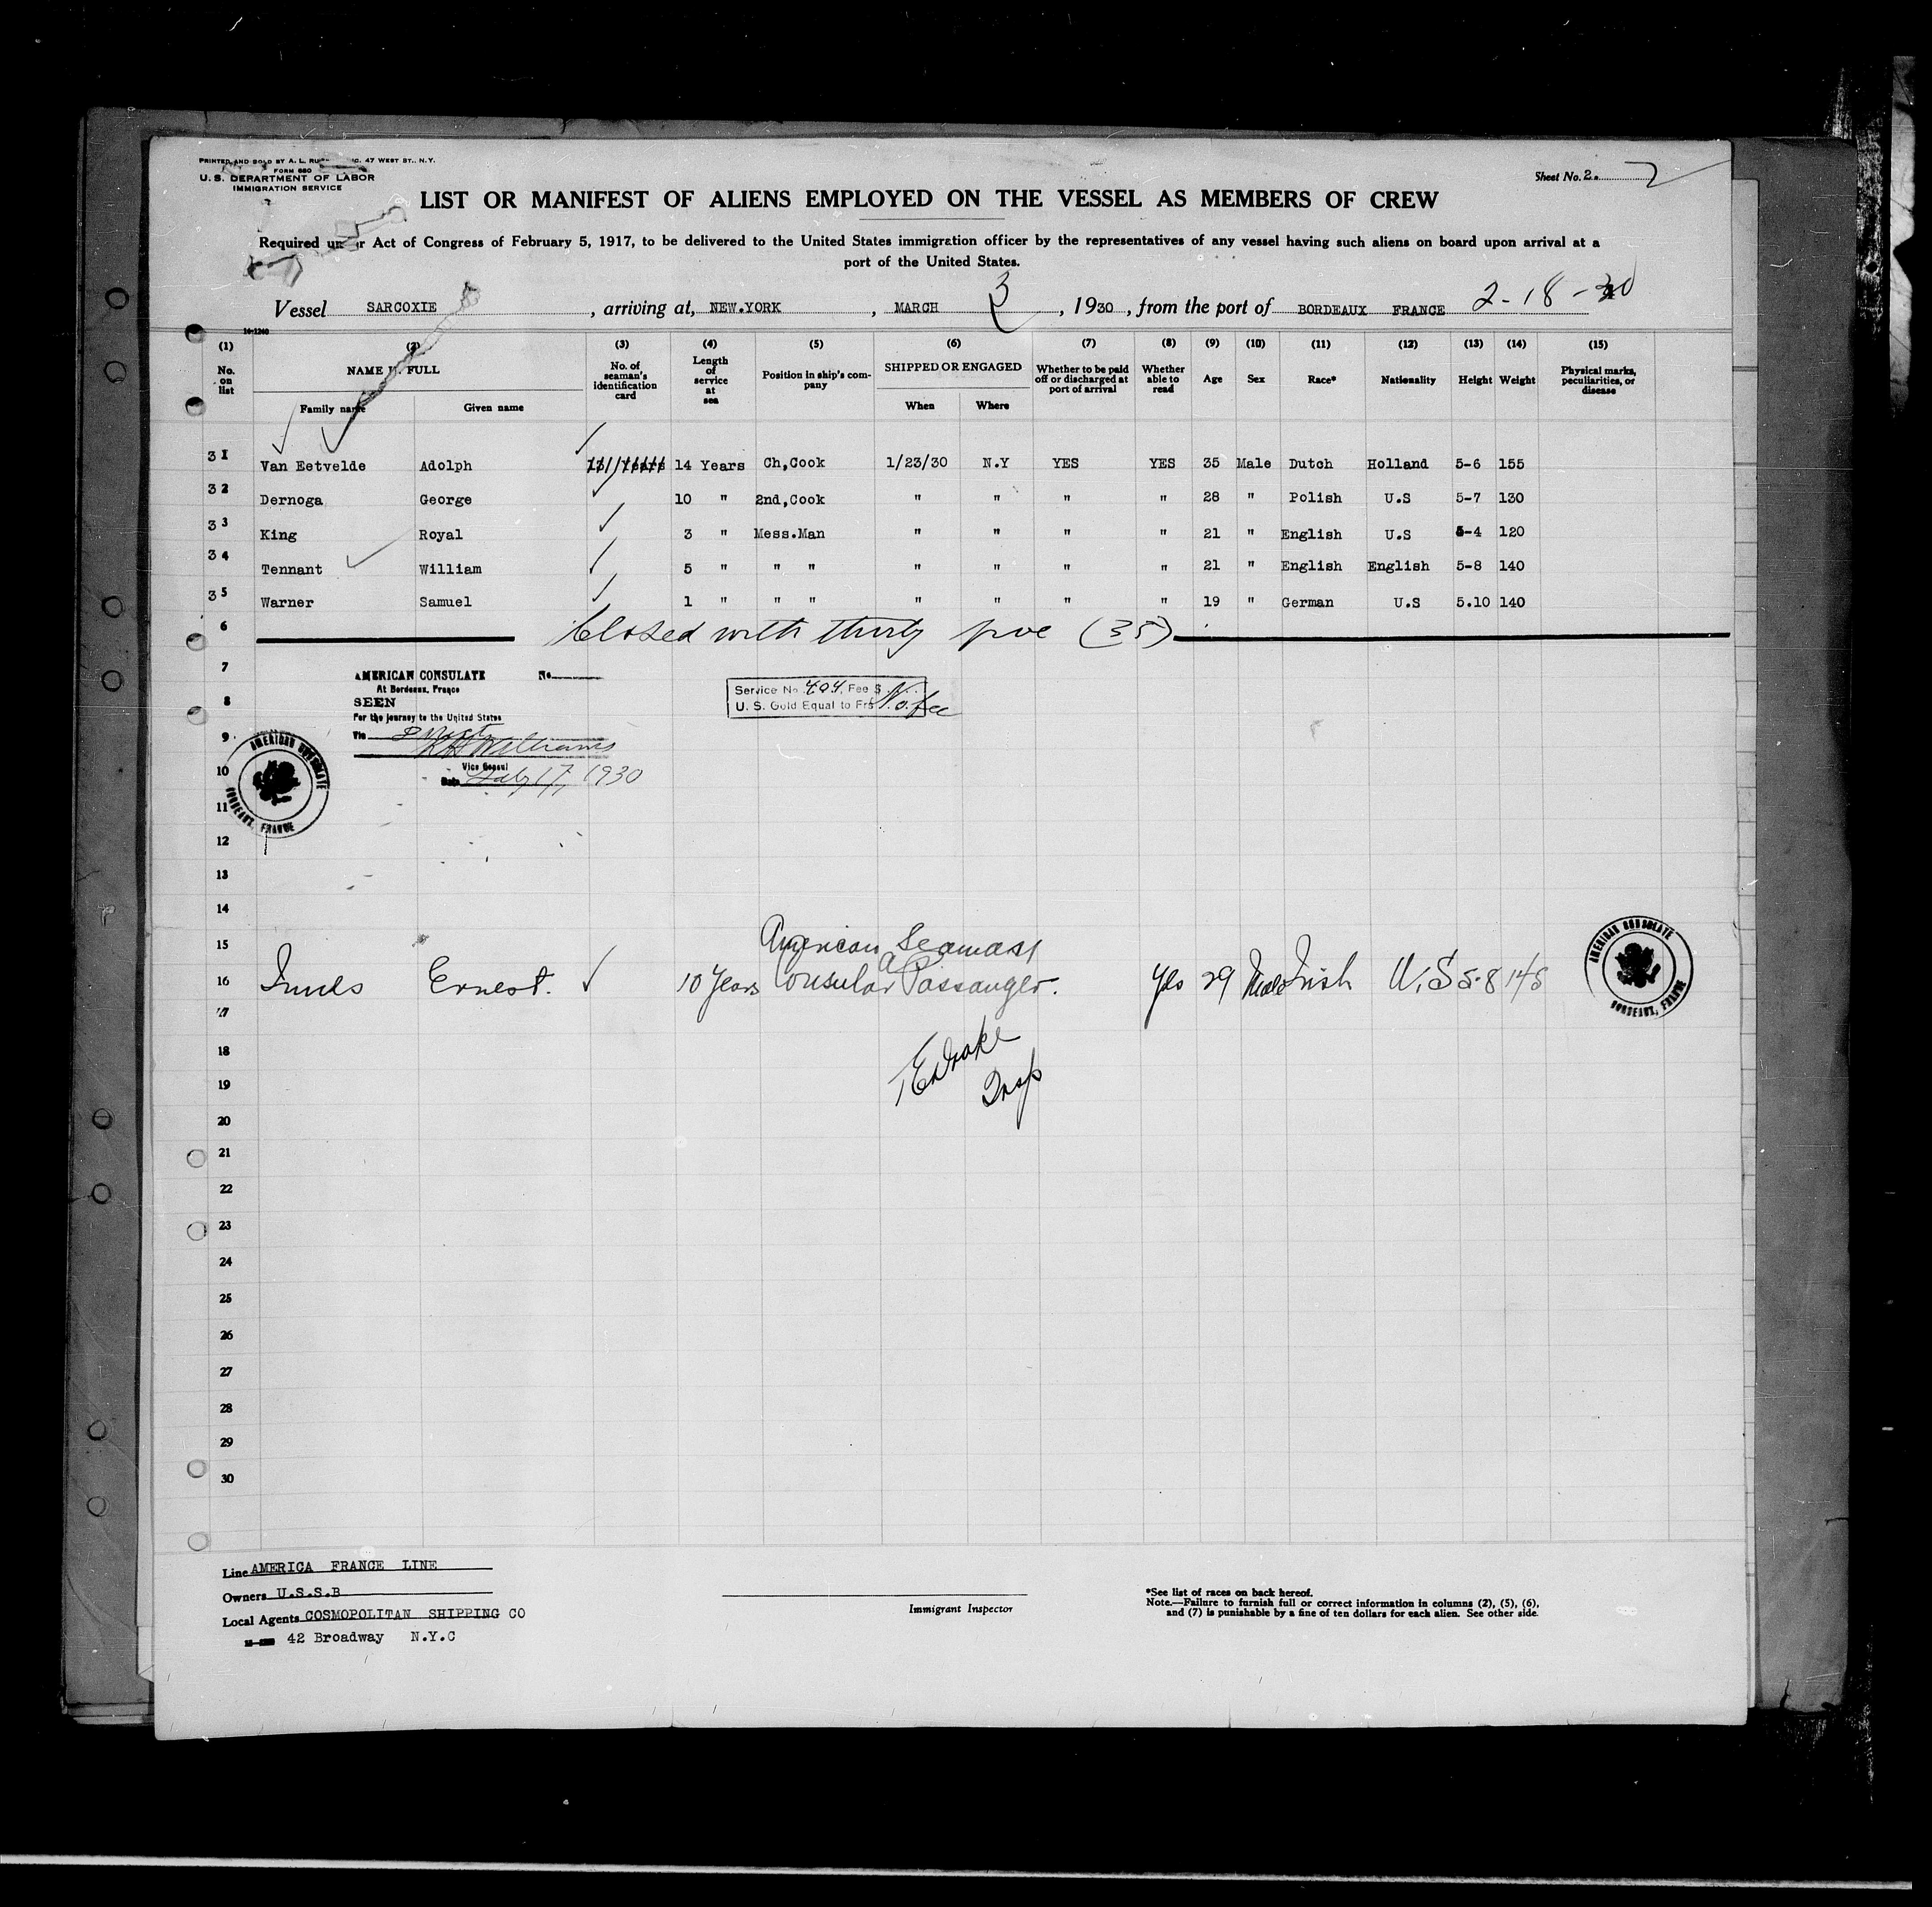 PRINTED AND SOLD BY A. L. 47 WEST ST., N.Y.
FORM 680
U. S. DEPARTMENT OF LABOR
IMMIGRATION SERVICE
Sheet No. 2. 2
LIST OR MANIFEST OF ALIENS EMPLOYED ON THE VESSEL AS MEMBERS OF CREW
Required under Act of Congress of February 5, 1917, to be delivered to the United States immigration officer by the representatives of any vessel having such aliens on board upon arrival at a
port of the United States.
Vessel SARCOXIE , arriving at, NEW.YORK , MARCH 3 , 1930 , from the port of BORDEAUX FRANCE 2-18-30
14-1240
(1) (2) (3) (4) (5) (6) (7) (8) (9) (10) (11) (12) (13) (14) (15)
No. on list NAME IN FULL No. of seaman's identification card Length of service at sea Position in ship's company SHIPPED OR ENGAGED Whether to be paid off or discharged at port of arrival Whether able to read Age Sex Race* Nationality Height Weight Physical marks, peculiarities, or disease
Family name Given name When Where
31 Van Eetvelde Adolph 14 Years Ch,Cook 1/23/30 N.Y YES YES 35 Male Dutch Holland 5-6 155
32 Dernoga George 10 " 2nd,Cook " " " " 28 " Polish U.S 5-7 130
33 King Royal 3 " Mess.Man " " " " 21 " English U.S 5-4 120
34 Tennant William 5 " " " " " " " 21 " English English 5-8 140
35 Warner Samuel 1 " " " " " " " 19 " German U.S 5.10 140
6 Closed with thirty five (35)
7
AMERICAN CONSULATE No.
At Bordeaux, France
8
SEEN
For the journey to the United States
Service No. 404, Fee $
U. S. Gold Equal to Frs No fee
9
Via Direct
Williams
Vice Consul
10
Date Feby 17, 1930
AMERICAN CONSULATE
BORDEAUX, FRANCE
11
12
13
14
15 American Seaman
16 Ernest. 10 Years Consular Passanger. Yes 29 Male Irish U.S 5-8 145
AMERICAN CONSULATE
BORDEAUX, FRANCE
17
18 Drake
19 Insp
20
21
22
23
24
25
26
27
28
29
30
Line AMERICA FRANCE LINE
Owners U.S.S.B
Local Agents COSMOPOLITAN SHIPPING CO
42 Broadway N.Y.C
Immigrant Inspector
*See list of races on back hereof.
Note.—Failure to furnish full or correct information in columns (2), (5), (6),
and (7) is punishable by a fine of ten dollars for each alien. See other side.